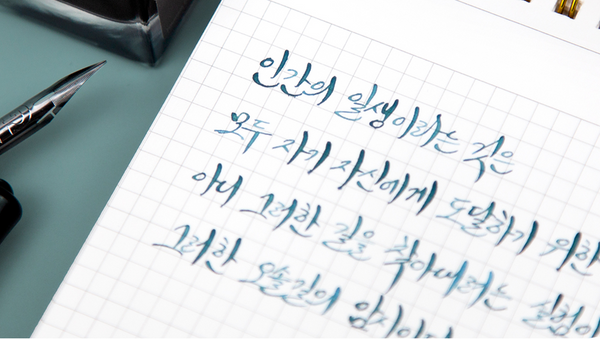 인간의 일생이라는 것은
모두 자기 자신에게 도달하기 위한
아니 그러한 길을 찾아내려는 실험이
그러한 오솔길의 암시이다